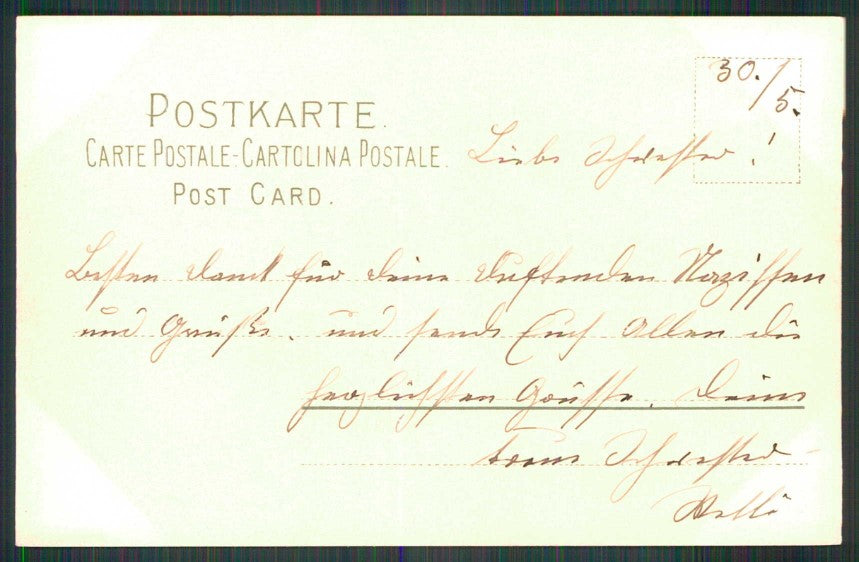 30./5.
POSTKARTE.
CARTE POSTALE-CARTOLINA POSTALE.
POST CARD.
Liebe Schwester!
Besten Dank für deine duftenden Nazissen
und Grüße. und sende Euch Allen die
herzlichsten Grüsse. Deine
treue Schwester